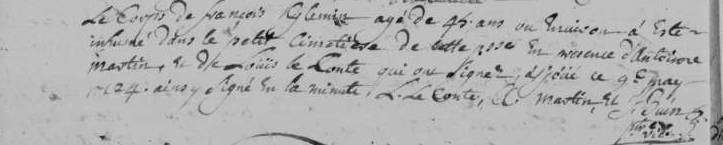 Le Corps de françois Kglemin agé de 45 ans ou environ á Esté
inhumé dans le petit Cimetiére de cette psse En présence d'Antoinne
martin, et de Louis le Conte qui on Signez, a ce 9e may
1724. ainsy Signé En la minute, L. Le Conte, A. martin, et